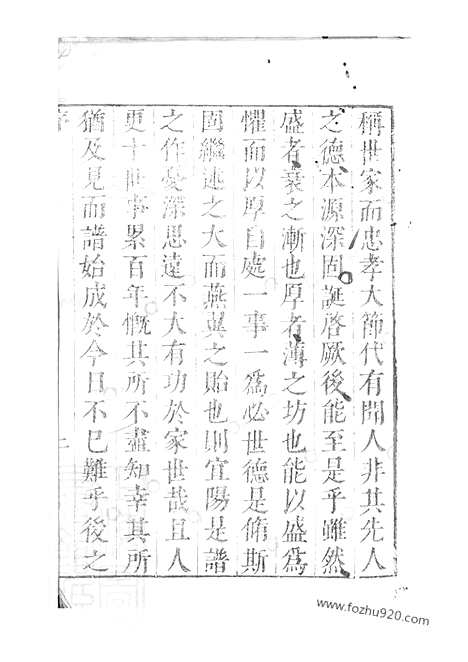 稱世家而忠孝大節代有聞人非其先人
之德本源深固誕啓厥後能至是乎雖然
盛者衰之漸也厚者薄之坊也能以盛爲
懼而以厚自處一事一爲必世德是脩斯
固繼述之大而燕翼之貽也則宜陽是譜
之作憂深思遠不大有功於家世哉且人
更十世事累百年慨其所不盡知幸其所
猶及見而譜始成於今日不已難乎後之
序
上
www.fozhu920.com